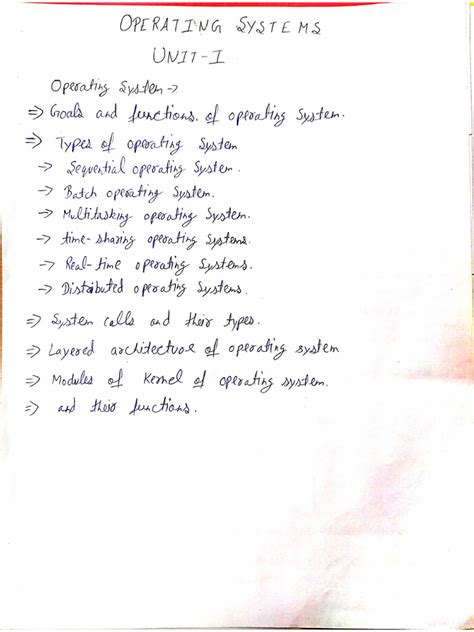 OPERATING SYSTEMS
UNIT-I
Operating System ->
=> Goals and functions of operating System.
=> Types of operating System
-> Sequential operating System.
-> Batch operating System.
-> Multitasking operating System.
-> time-sharing operating Systems.
-> Real-time operating Systems.
-> Distributed operating Systems.
=> System calls and their types.
=> Layered architecture of operating system
=> Modules of Kernel of operating system.
=> and their functions.